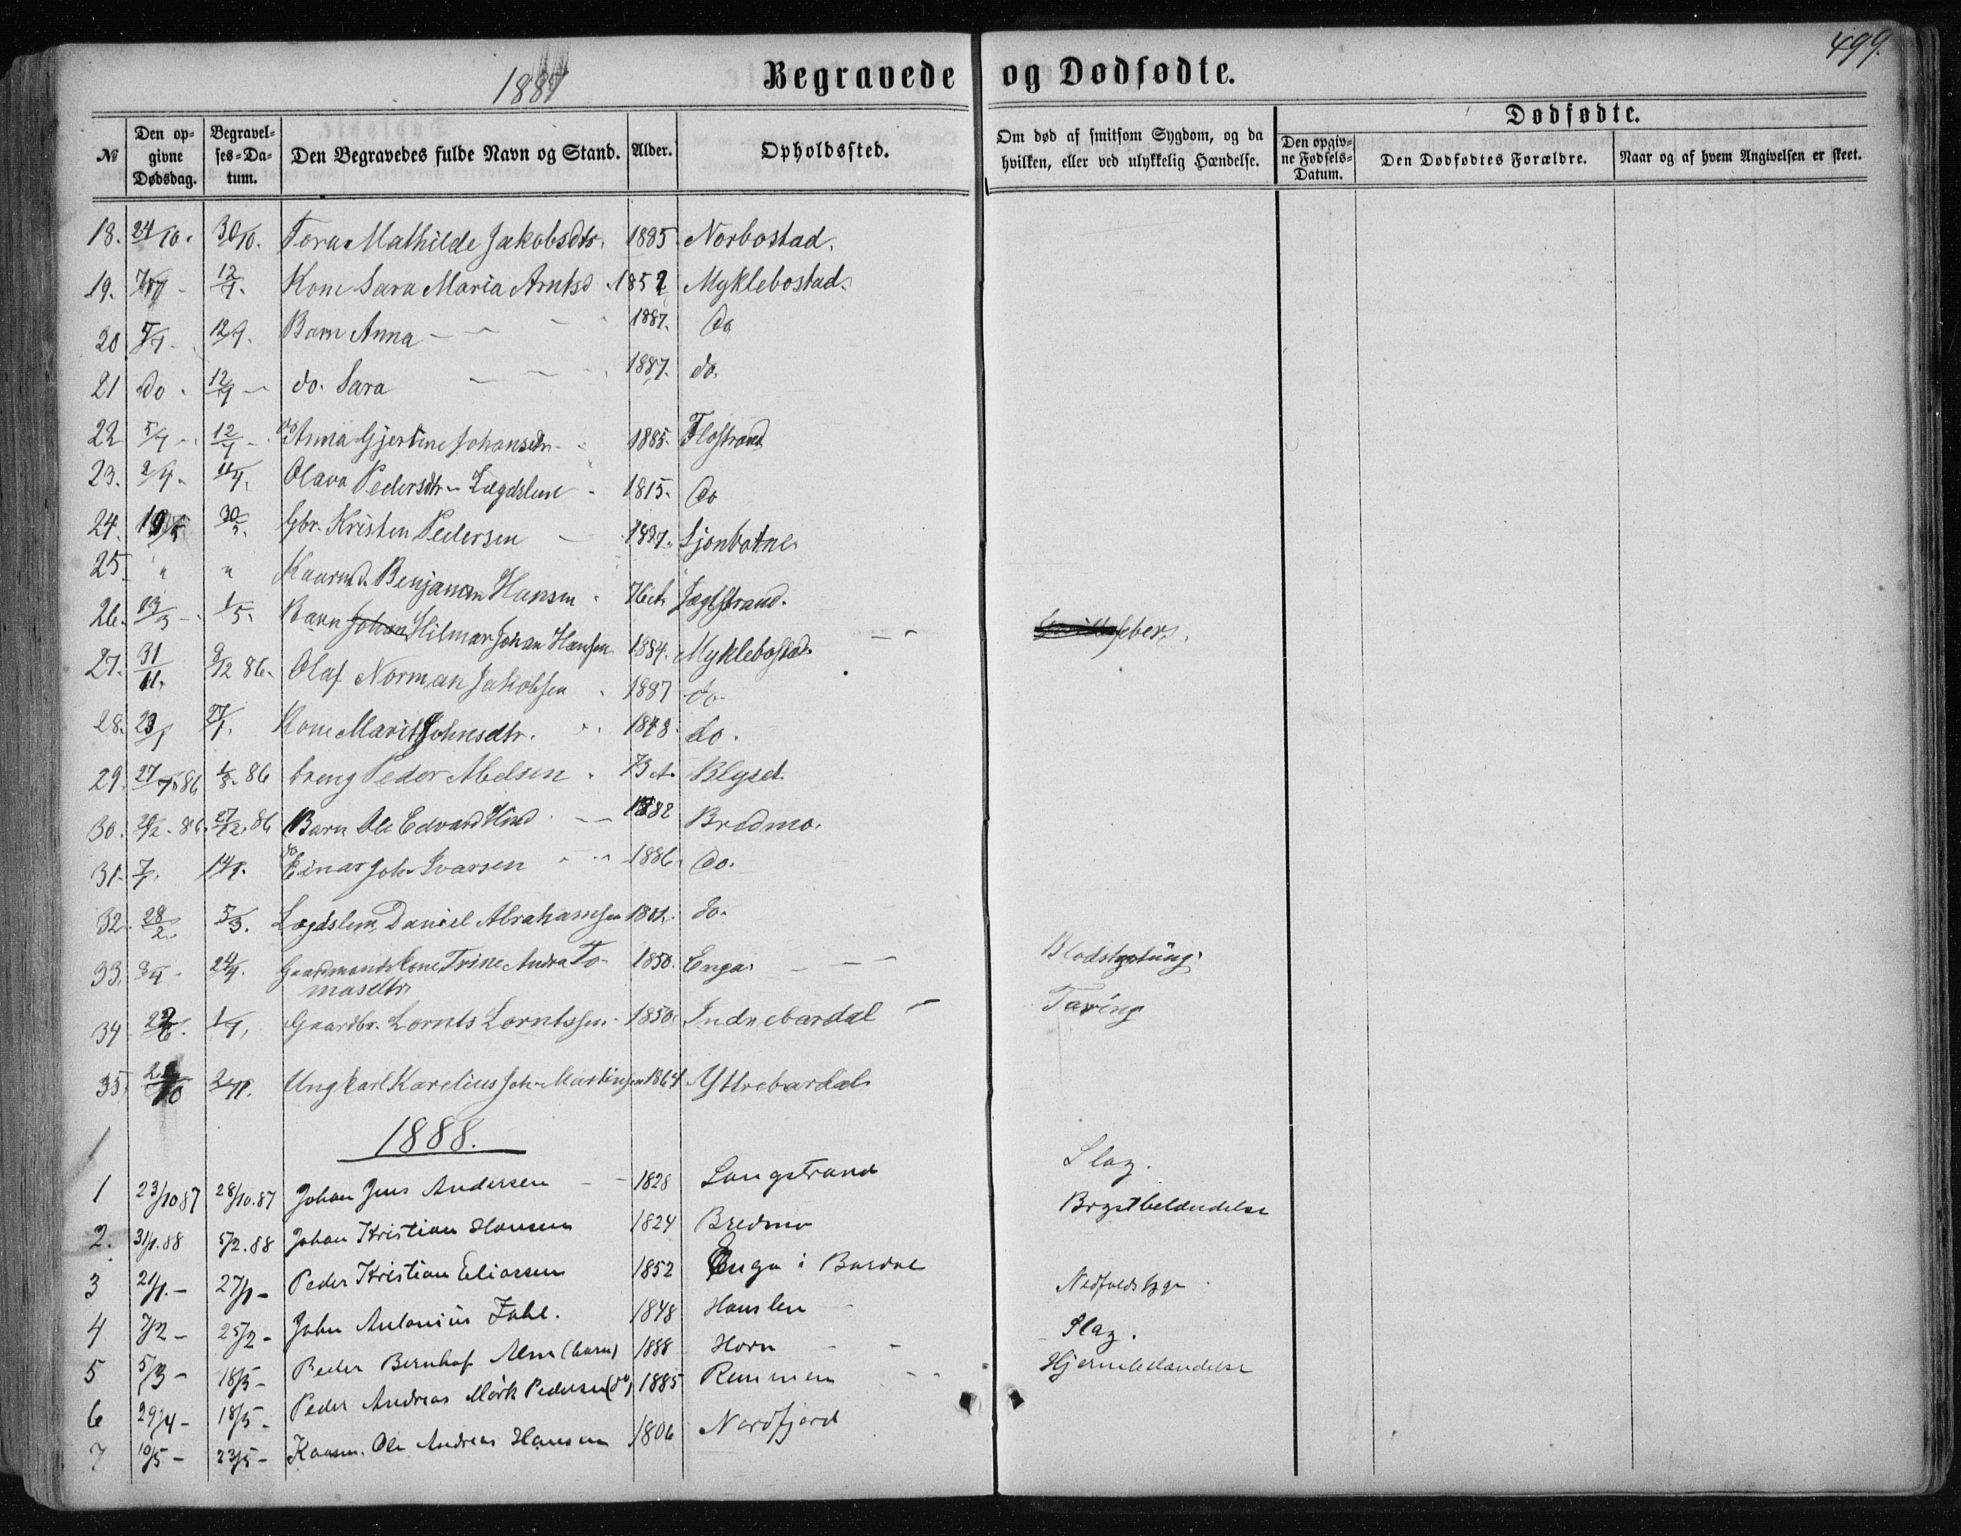 499.
1887
Begravede og Dødfødte.
№
Den op-
givne
Dødsdag.
Begravel-
ses-Da-
tum.
Den Begravedes fulde Navn og Stand.
Alder.
Opholdssted.
Om død af smitsom Sygdom, og da
hvilken, eller ved ulykkelig Hændelse.
Dødfødte.
Den opgiv-
ne Fødsels-
Datum.
Den Dødfødtes Forældre.
Naar og af hvem Angivelsen er skeet.
18. 24/10. 30/10. Tora Mathilde Jakobsdtr. 1885 Norbostad.
19. 12/9. Kone Sara Maria Arntsd 1852 Myklebostad.
20 5/9. 12/9. Barn Anna 1887. do
21 do 12/9 do. Sara 1887. do.
22 5/9 12/9 do Anna Gjertine Johansdtr 1885. Flostrand
23. 2/9. 11/9. Olava Pedersdtr Lægdslem 1815. do
24. 30/5. Gbr. Kristen Pedersen 1837. Sjonbotne
25. " " Kaarmd. Benjamin Hansen 76 A. Jægtstrand.
26. 13/3 1/5. Barn Johan Hilmar Johan Hansen 1884. Myklebostad febers.
27. 31/11. 9/12 86. Olaf Norman Jakobsen 1887 do
28. 23/1 27/1. Kone Marit Johnsdtr. 1848. do.
29. 27/7 86 1/8. 86 Peder Abelsen 73 A. Blyset
30. 20/12. 86. 27/12. 86 Barn Ole Edvard Kind 1882 Bredmo.
31. 7/1. 14/1. do Einar Joh. Ivarsen 1886. do.
32. 28/2 5/3. Lægdslem Daniel Abrahamsen 1801. do.
33. 24/4. Gaardmandskone Trine Andrea To- 1850. Enga.
masdtr
Blodstyrtüng.
34. 1/7. Gaardbr. Lornts Lorntssen 1850. Indrebardal Tæring
35. 2/11. Ungkarl Karelius Joh. Martinsen 1864 Ystrebardal
1
1888.
1 23/10 87 28/10. 87 Johan Jens Andersen 1828 Langstrand Slag.
2. 31/1. 88 5/2. 88 Johan Kristian Hansen 1824 Bredmo Brystbetændelse
3 21/1. – 27/1 – Peder Kristian Eliassen 1852 Enga i Bardal
4 7/2 – 25/2 – John Antonius Fahl. 1848 Nedfaldssyge.
5 5/3 – 18/5 – Peder Bernhof Alm (barn) 1888 Horn Slag.
6 29/4 – 18/5 – Peder Andreas Mörk Pedersen (do) 1885 Remmen Hjernebetændelse
7 10/5 – 23/5 – Kaarm. Ole Andreas Hansen 1806 Nordfjord